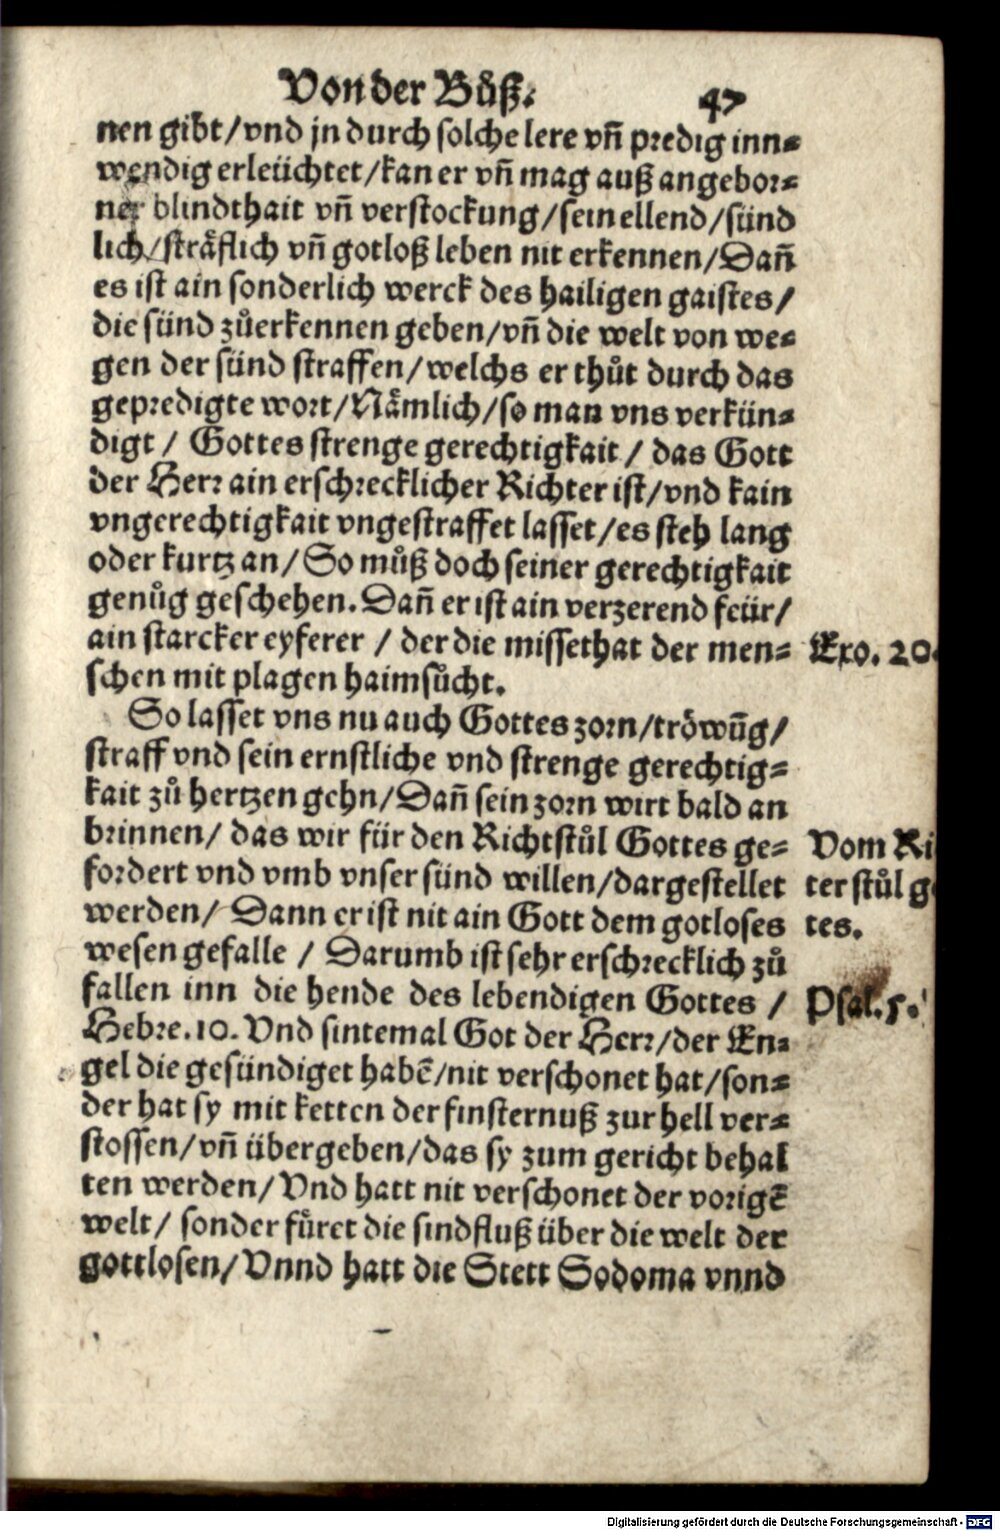 Von der Bůß. 47
nen gibt/vnd jn durch solche lere vñ predig inn⸗
wendig erleüchtet/kan er vñ mag auß angebor⸗
ner blindthait vñ verstockung/sein ellend/sünd
lich/sträflich vñ gotloß leben nit erkennen/Dañ
es ist ain sonderlich werck des hailigen gaistes/
die sünd zůerkennen geben/vñ die welt von we⸗
gen der sünd straffen/welchs er thůt durch das
gepredigte wort/Nämlich/so man vns verkün⸗
digt / Gottes strenge gerechtigkait / das Gott
der Herr ain erschrecklicher Richter ist/vnd kain
vngerechtigkait vngestraffet lasset/es steh lang
oder kurtz an/So můß doch seiner gerechtigkait
genůg geschehen. Dañ er ist ain verzerend feür/
ain starcker eyferer / der die missethat der men⸗
schen mit plagen haimsůcht.
Exo. 20.
So lasset vns nu auch Gottes zorn/tröwũg/
straff vnd sein ernstliche vnd strenge gerechtig⸗
kait zů hertzen gehn/Dañ sein zorn wirt bald an
brinnen/ das wir für den Richtstůl Gottes ge⸗
fordert vnd vmb vnser sünd willen/dargestellet
werden/ Dann er ist nit ain Gott dem gotloses
wesen gefalle / Darumb ist sehr erschrecklich zů
fallen inn die hende des lebendigen Gottes /
Hebre.10. Vnd sintemal Got der Herr/der En⸗
gel die gesündiget habẽ/nit verschonet hat/son⸗
der hat sy mit ketten der finsternuß zur hell ver⸗
stossen/vñ übergeben/das sy zum gericht behal
ten werden/Vnd hatt nit verschonet der vorigẽ
welt/ sonder füret die sindfluß über die welt der
gottlosen/Vnnd hatt die Stett Sodoma vnnd
Vom Ri
ter stůl g
tes.
Psal. 5.
Digitalisierung gefördert durch die Deutsche Forschungsgemeinschaft - DFG